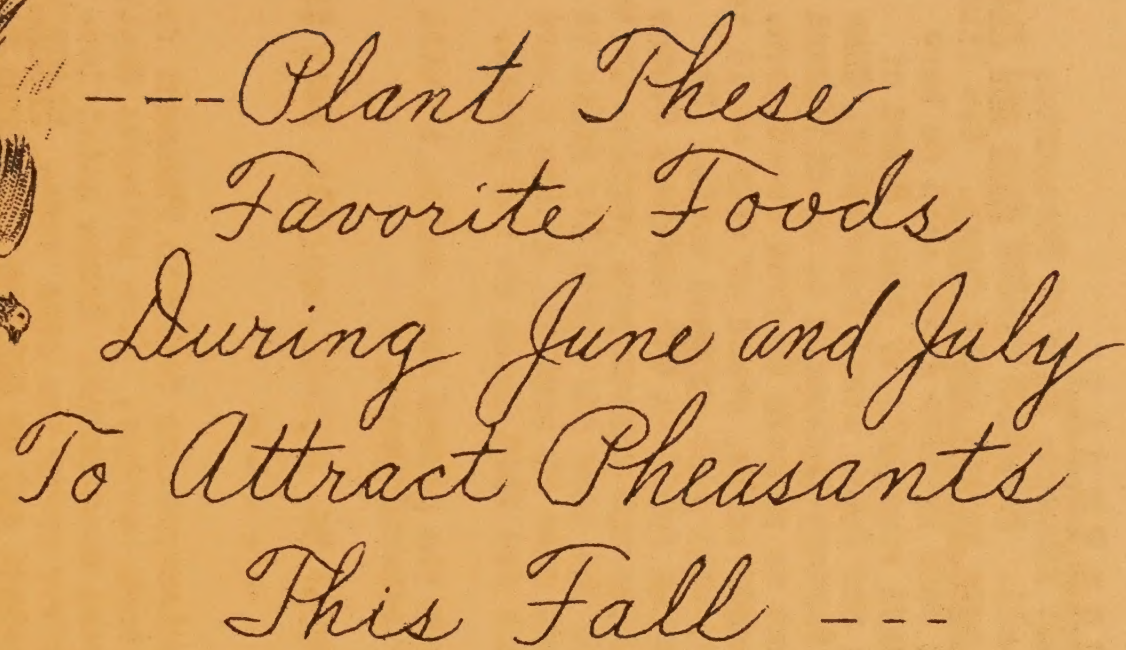 ---Plant These
Favorite Foods
During June and July
To Attract Pheasants
This Fall ---